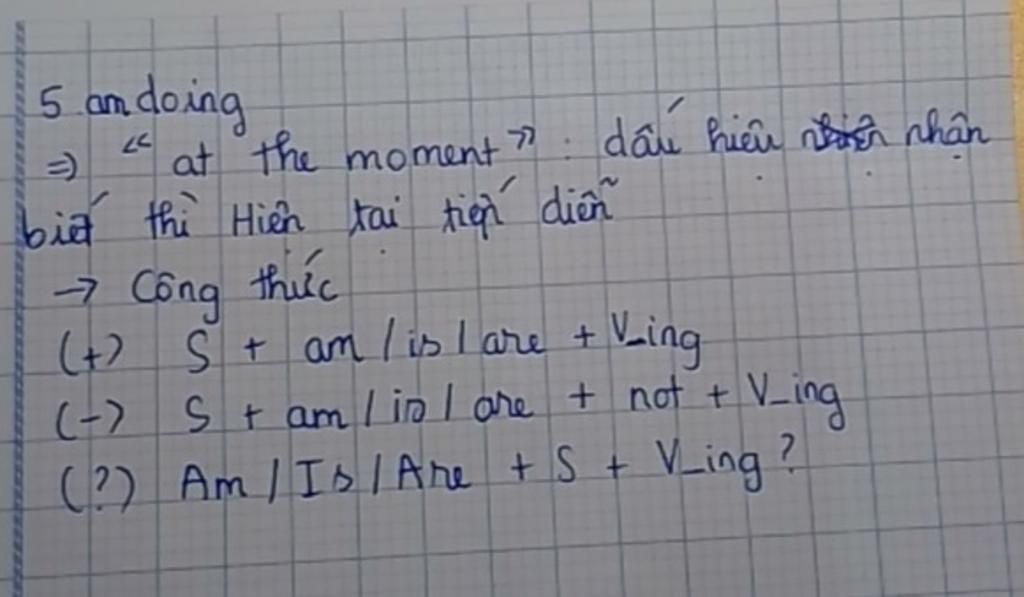 5. am doing
=> "at the moment": dấu hiệu nhận
biết thì Hiện tại tiếp diễn
→ Công thức
(+) S + am / is / are + V_ing
(-) S + am / is / are + not + V_ing
(?) Am / Is / Are + S + V_ing?